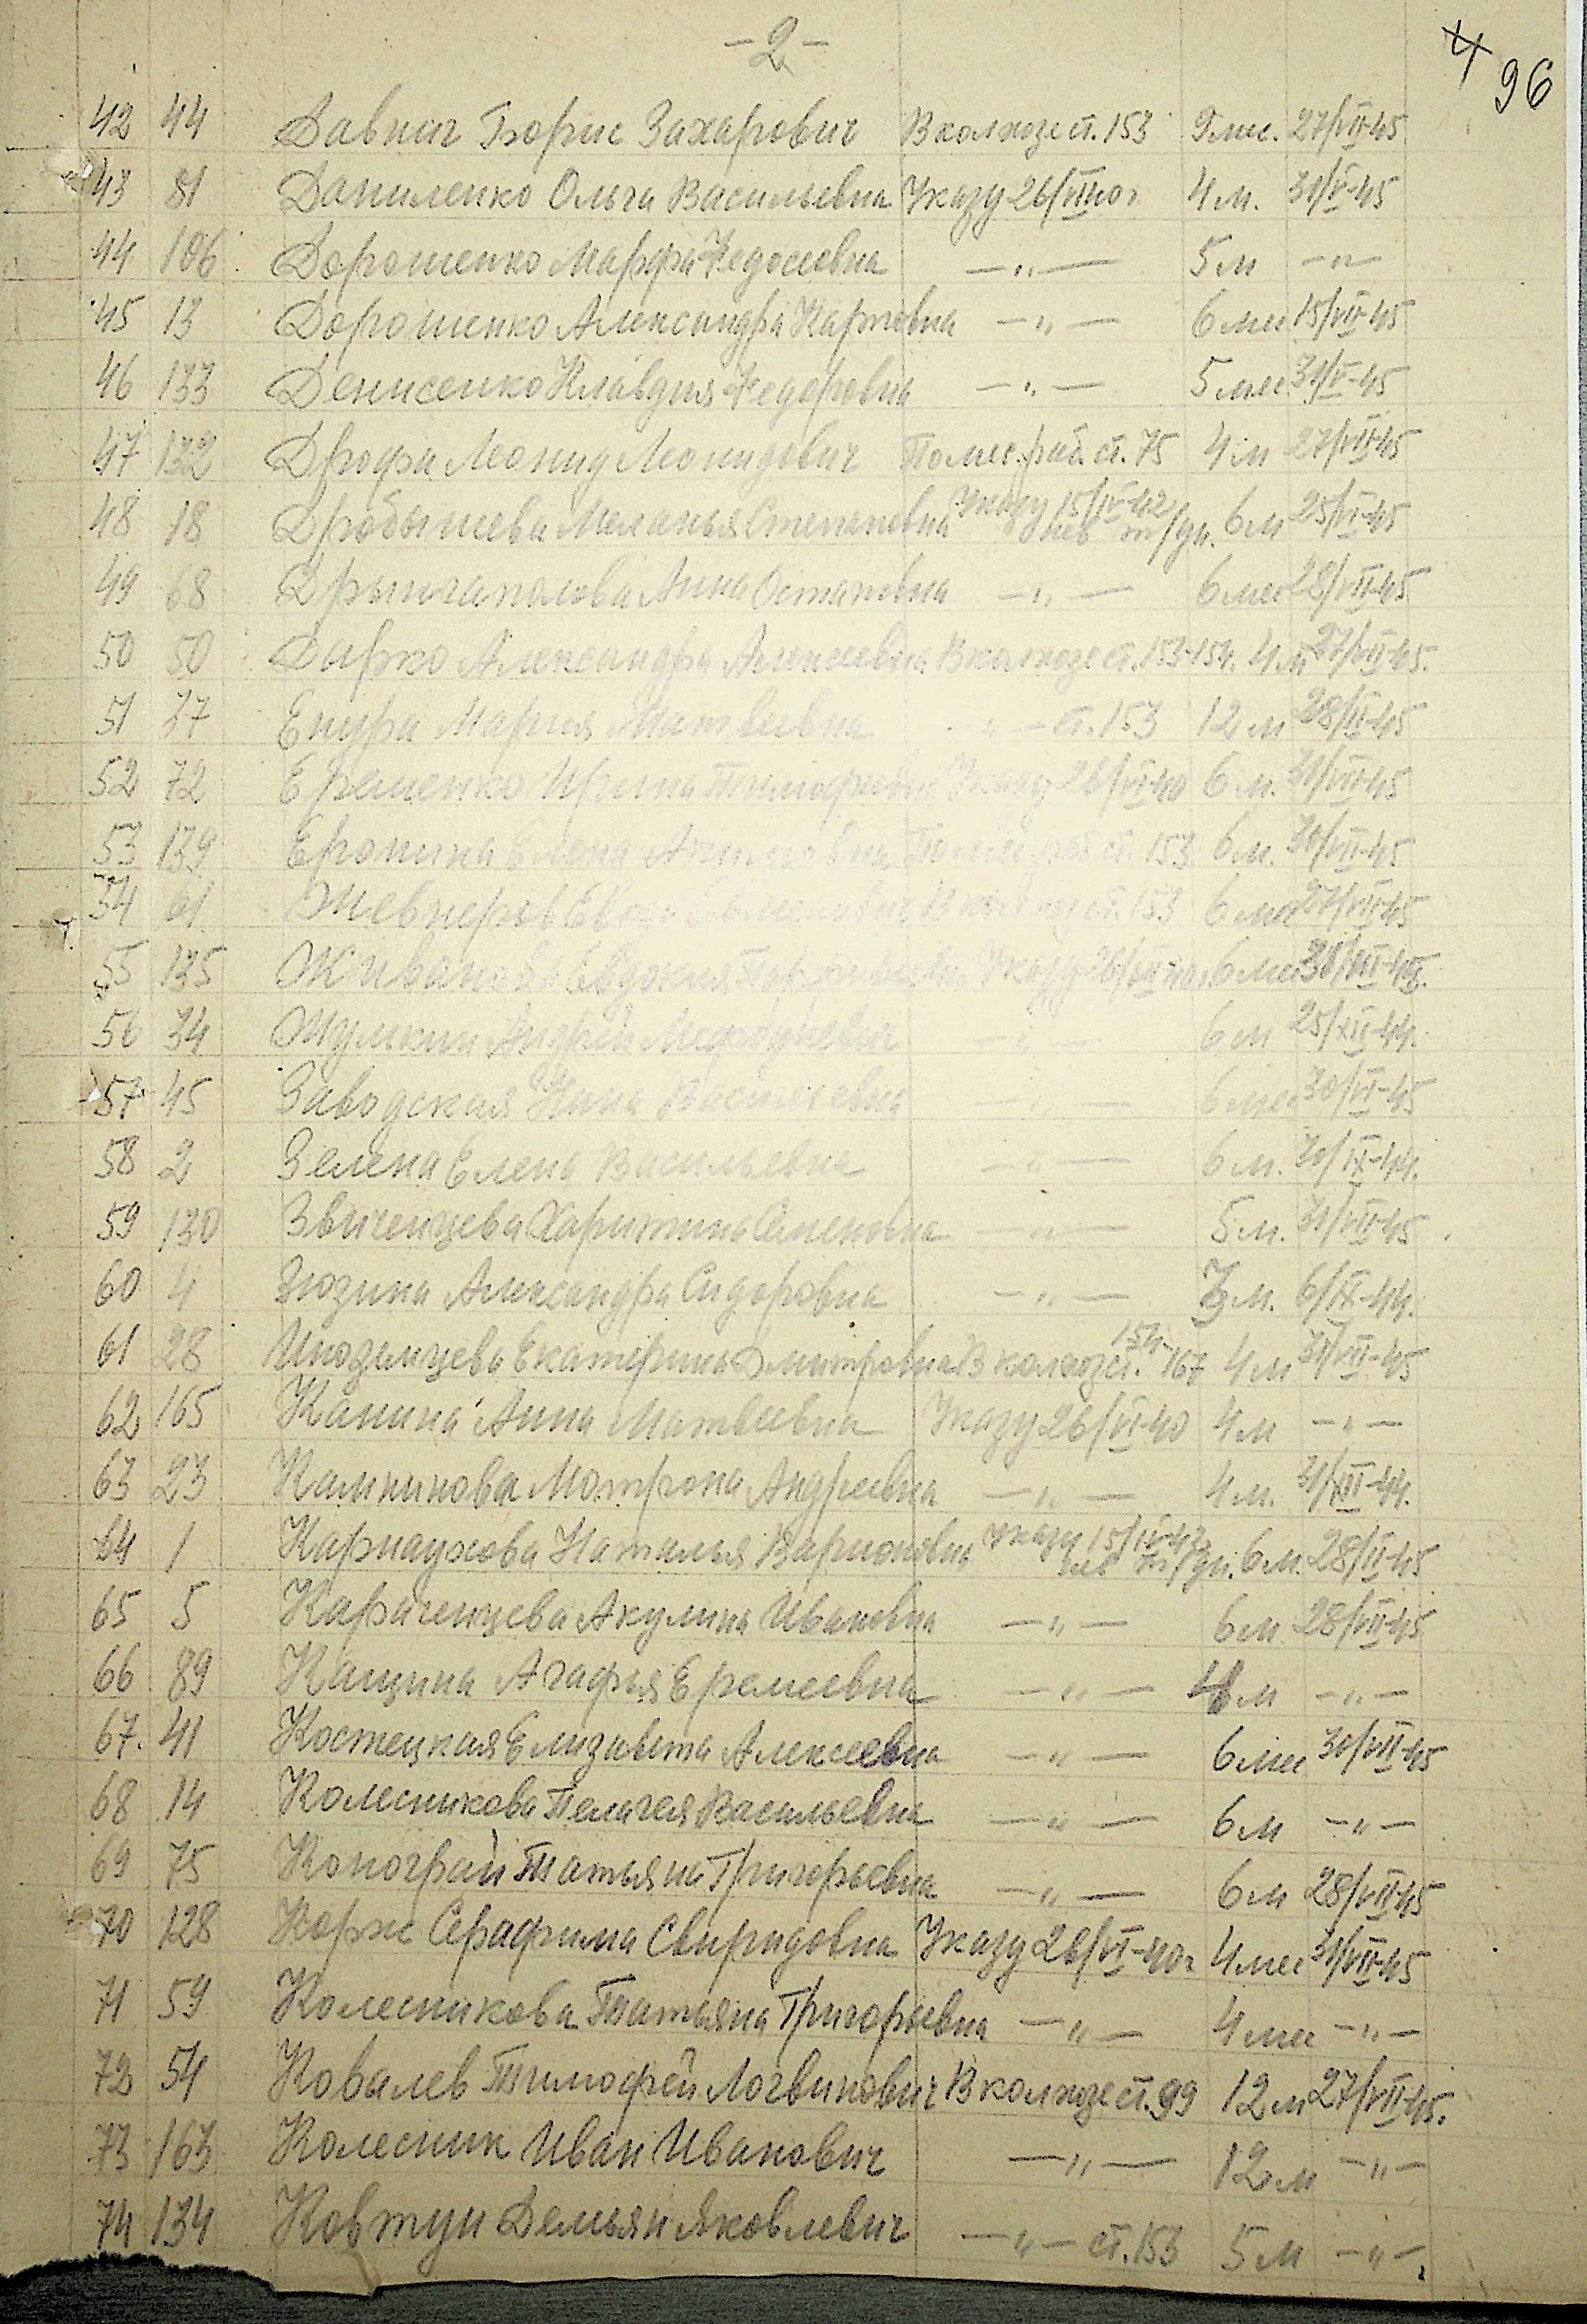 -2-
4 96
42 44 Давнич Борис Захарович В колхозе ст. 153 9 мес. 27/VII-45
43 81 Даниленко Ольга Васильевна Указу 26/VI 40 г 4 м. 31/V-45
44 106 Дорошенко Марфа Федосеевна —"— 5 м —"—
45 13 Дорошенко Александра Карповна —"— 6 мес 15/VII-45
46 133 Денисенко Клавдия Федоровна —"— 5 мес 31/V-45
47 132 Дрофа Леонид Леонидович По мес. рай. ст. 75 4 м 27/VII-45
48 18 Дробышева Меланья Степановна Указу 15/IV-42 нев тр/дн. 6 м 25/VI-45
49 68 Анна Остаповна —"— 6 мес 28/VII-45
50 50 Дарко Александра Алексеевна В колхозе ст. 153-154. 4 м 27/VII-45.
51 37 Мария Матвеевна —"— ст. 153 12 м 28/II-45
52 72 Еременко Ирина Тимофеевна Указу 26/VI-40 6 м. 31/VII-45
53 139 Еронина Елена Акимовна ст. 153 6 м. 31/VII-45
54 61 В колхозе ст. 153 6 мес 27/VII-45
55 135 Евдокия Указу 26/VI 40 6 мес
56 34 Андрей —"— 6 м 25/XII-44.
57 45 Заводская Нина Васильевна —"— 6 мес 30/VI-45
58 2 Зелена Елена Васильевна —"— 6 м. 30/IX-44.
59 130 Звягенцева Харитина Семеновна —"— 5 м. 31/VII-45
60 4 Зюзина Александра Сидоровна —"— м. 6/IX-44.
61 28 Иноземцева Екатерина Дмитровна В колхозе ст. 154-167 4 м 31/VII-45
62 165 Канина Анна Матвеевна Указу 26/VI-40 4 м —"—
63 23 Калинова Мотрона Андреевна —"— 4 м. 31/XII-44.
64 1 Карнаухова Наталья Ларионовна Указу 15/IV-42 нев тр/дн. 6 м. 28/II-45
65 5 Карагенцева Акулина Ивановна —"— 6 м 28/VII-45
66 89 Кащина Агафья Еремеевна —"— м —"—
67. 41 Костецкая Елизавета Алексеевна —"— 6 мес 31/VII-45
68 14 Колесникова Пелагея Васильевна —"— 6 м —"—
69 75 Коноград Татьяна Григорьевна —"— 6 м 28/VII-45
70 128 Корж Серафима Свиридовна Указу 26/VI-40 г 4 мес 31/VII-45
71 59 Колесникова Татьяна Григорьевна —"— 4 мес —"—
72 54 Ковалев Тимофей Логвинович В колхозе ст. 99 12 м 27/VII-45.
73 163 Колесник Иван Иванович —"— 12 м —"—
74 134 Ковтун Демьян Яковлевич —"— ст. 153 5 м —"—